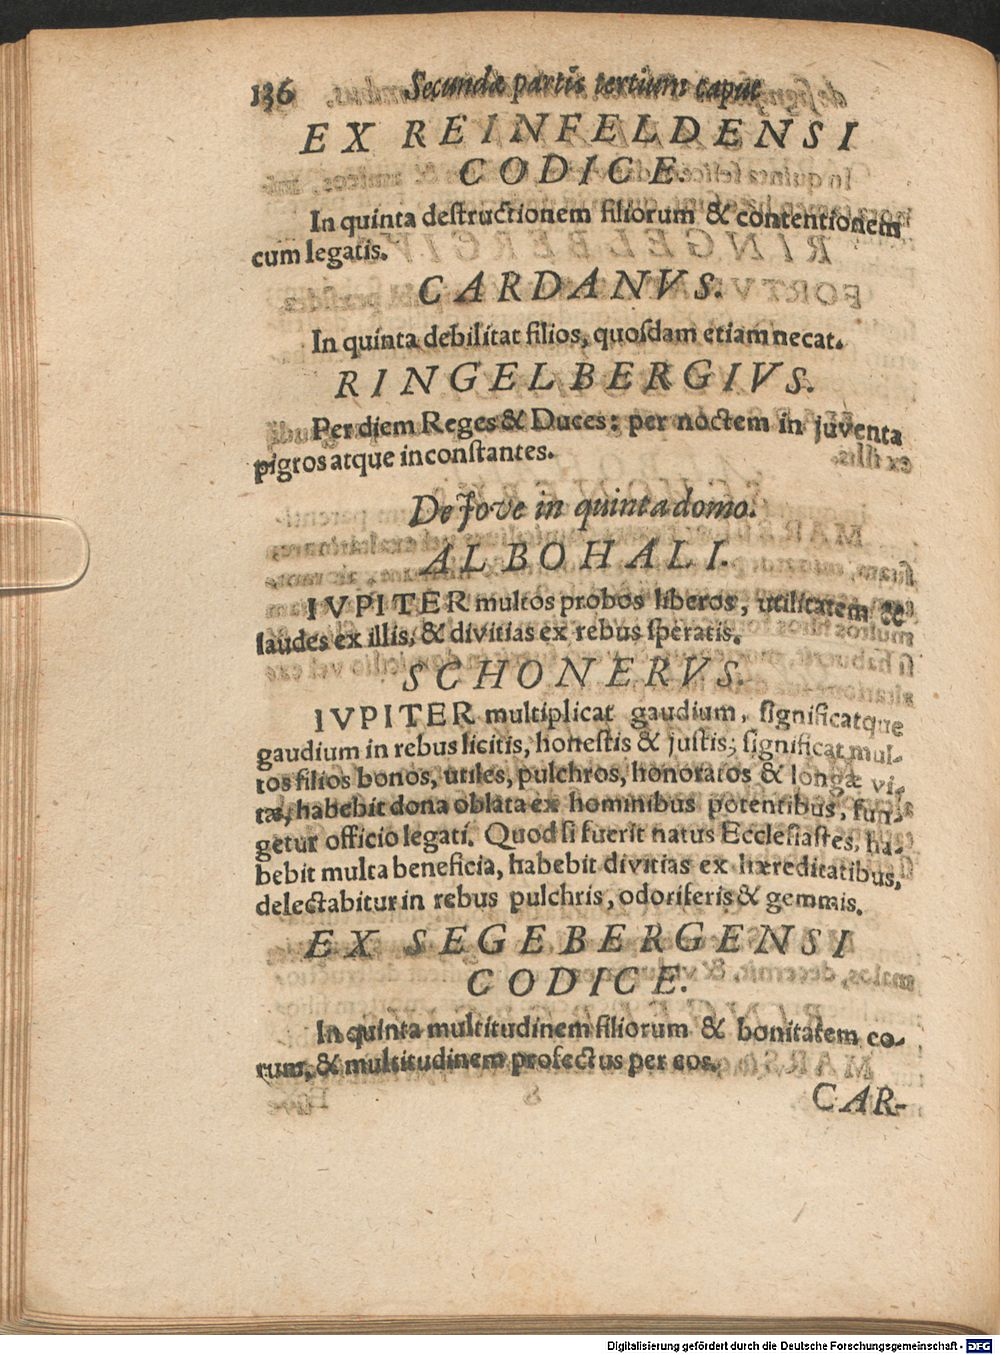 136 Secundæ partis tertium caput
EX REINFELDENSI
CODICE.
In quinta destructionem filiorum & contentionem
cum legatis.
CARDANVS.
In quinta debilitat filios, quosdam etiam necat.
RINGELBERGIVS.
Per diem Reges & Duces: per noctem in juventa
pigros atque inconstantes.
De Jove in quinta domo.
ALBOHALI.
IVPITER multos probos liberos, utilitatem &
laudes ex illis, & divitias ex rebus speratis.
SCHONERVS.
IVPITER multiplicat gaudium, significatque
gaudium in rebus licitis, honestis & justis; significat mul-
tos filios bonos, utiles, pulchros, honoratos & longæ vi-
tæ, habebit dona oblata ex hominibus potentibus, fun-
getur officio legati. Quod si fuerit natus Ecclesiastes, ha-
bebit multa beneficia, habebit divitias ex hæreditatibus,
delectabitur in rebus pulchris, odoriferis & gemmis.
EX SEGEBERGENSI
CODICE.
In quinta multitudinem filiorum & bonitatem eo-
rum, & multitudinem profectus per eos.
CAR-
Digitalisierung gefördert durch die Deutsche Forschungsgemeinschaft - DFG